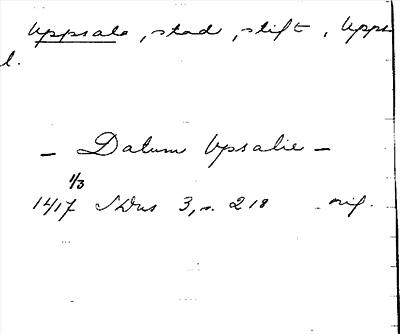 Uppsala, stad, stift, Upps
l.
– Datum Vpsalie –
1/3
1417 SDns 3, s. 218 orig.